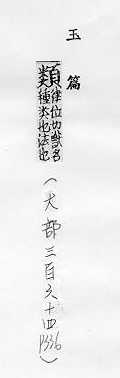 玉篇
類律位切獸名
種类也法也
(犬部三百六十四 P336)